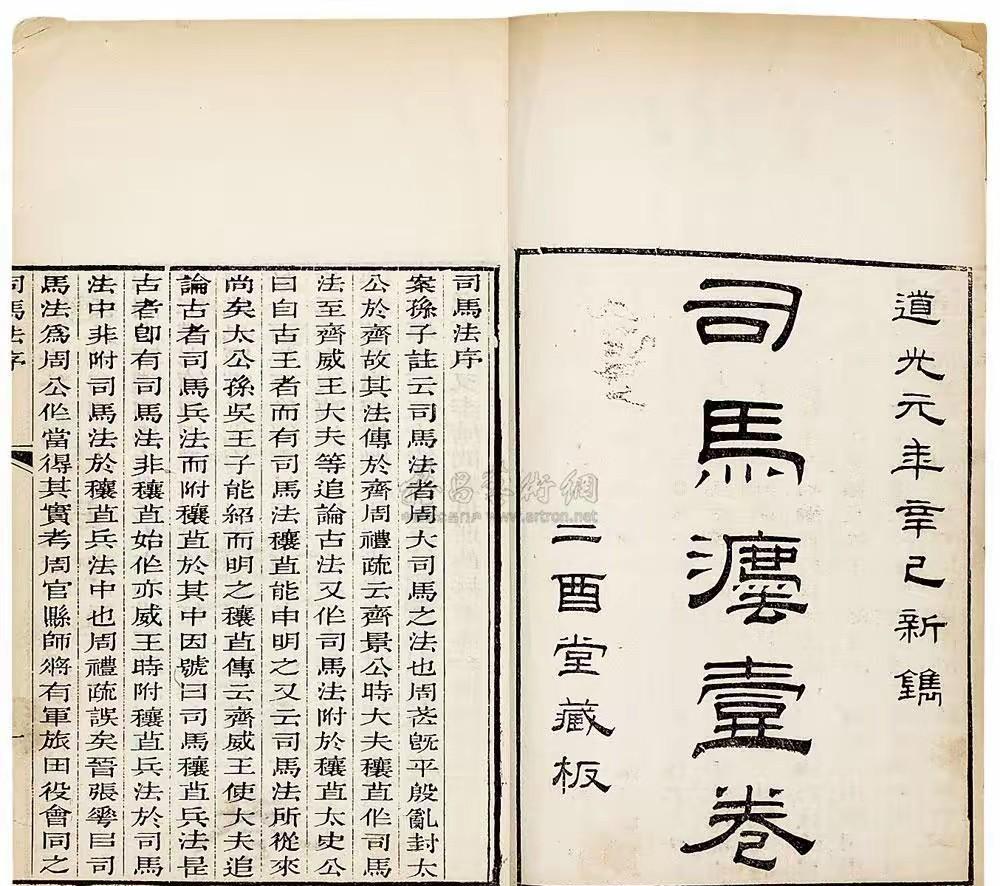 道光元年辛巳新鐫
司馬灋壹卷
二酉堂藏板
司馬法序
案孫子註云司馬法者周大司馬之法也周武旣平殷亂封太
公於齊故其法傳於齊周禮疏云齊景公時大夫穰苴作司馬
法至齊威王大夫等追論古法又作司馬法附於穰苴太史公
曰自古王者而有司馬法穰苴能申明之又云司馬法所從來
尚矣太公孫吳王子能紹而明之穰苴傳云齊威王使大夫追
論古者司馬兵法而附穰苴於其中因號曰司馬穰苴兵法是
古者卽有司馬法非穰苴始作亦威王時附穰苴兵法於司馬
法中非附司馬法於穰苴兵法中也周禮疏誤矣晉張華㠯司
馬法爲周公作當得其實考周官縣師將有軍旅田役會同之
司馬法序
一
昌藝術網
www.artron.net